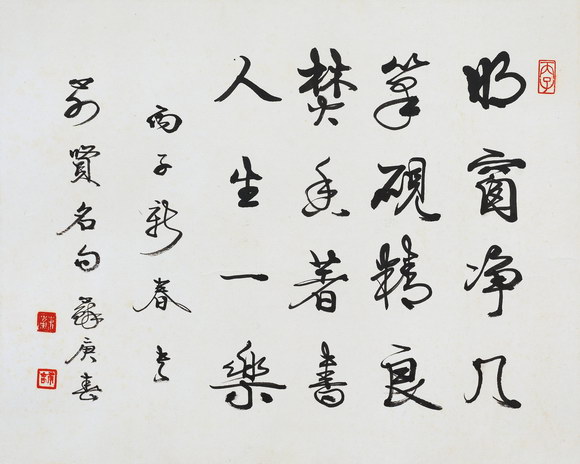 丙子
明窗净几
筆硯精良
焚香著書
人生一樂
丙子新春書
前賢名句 蘇庚春